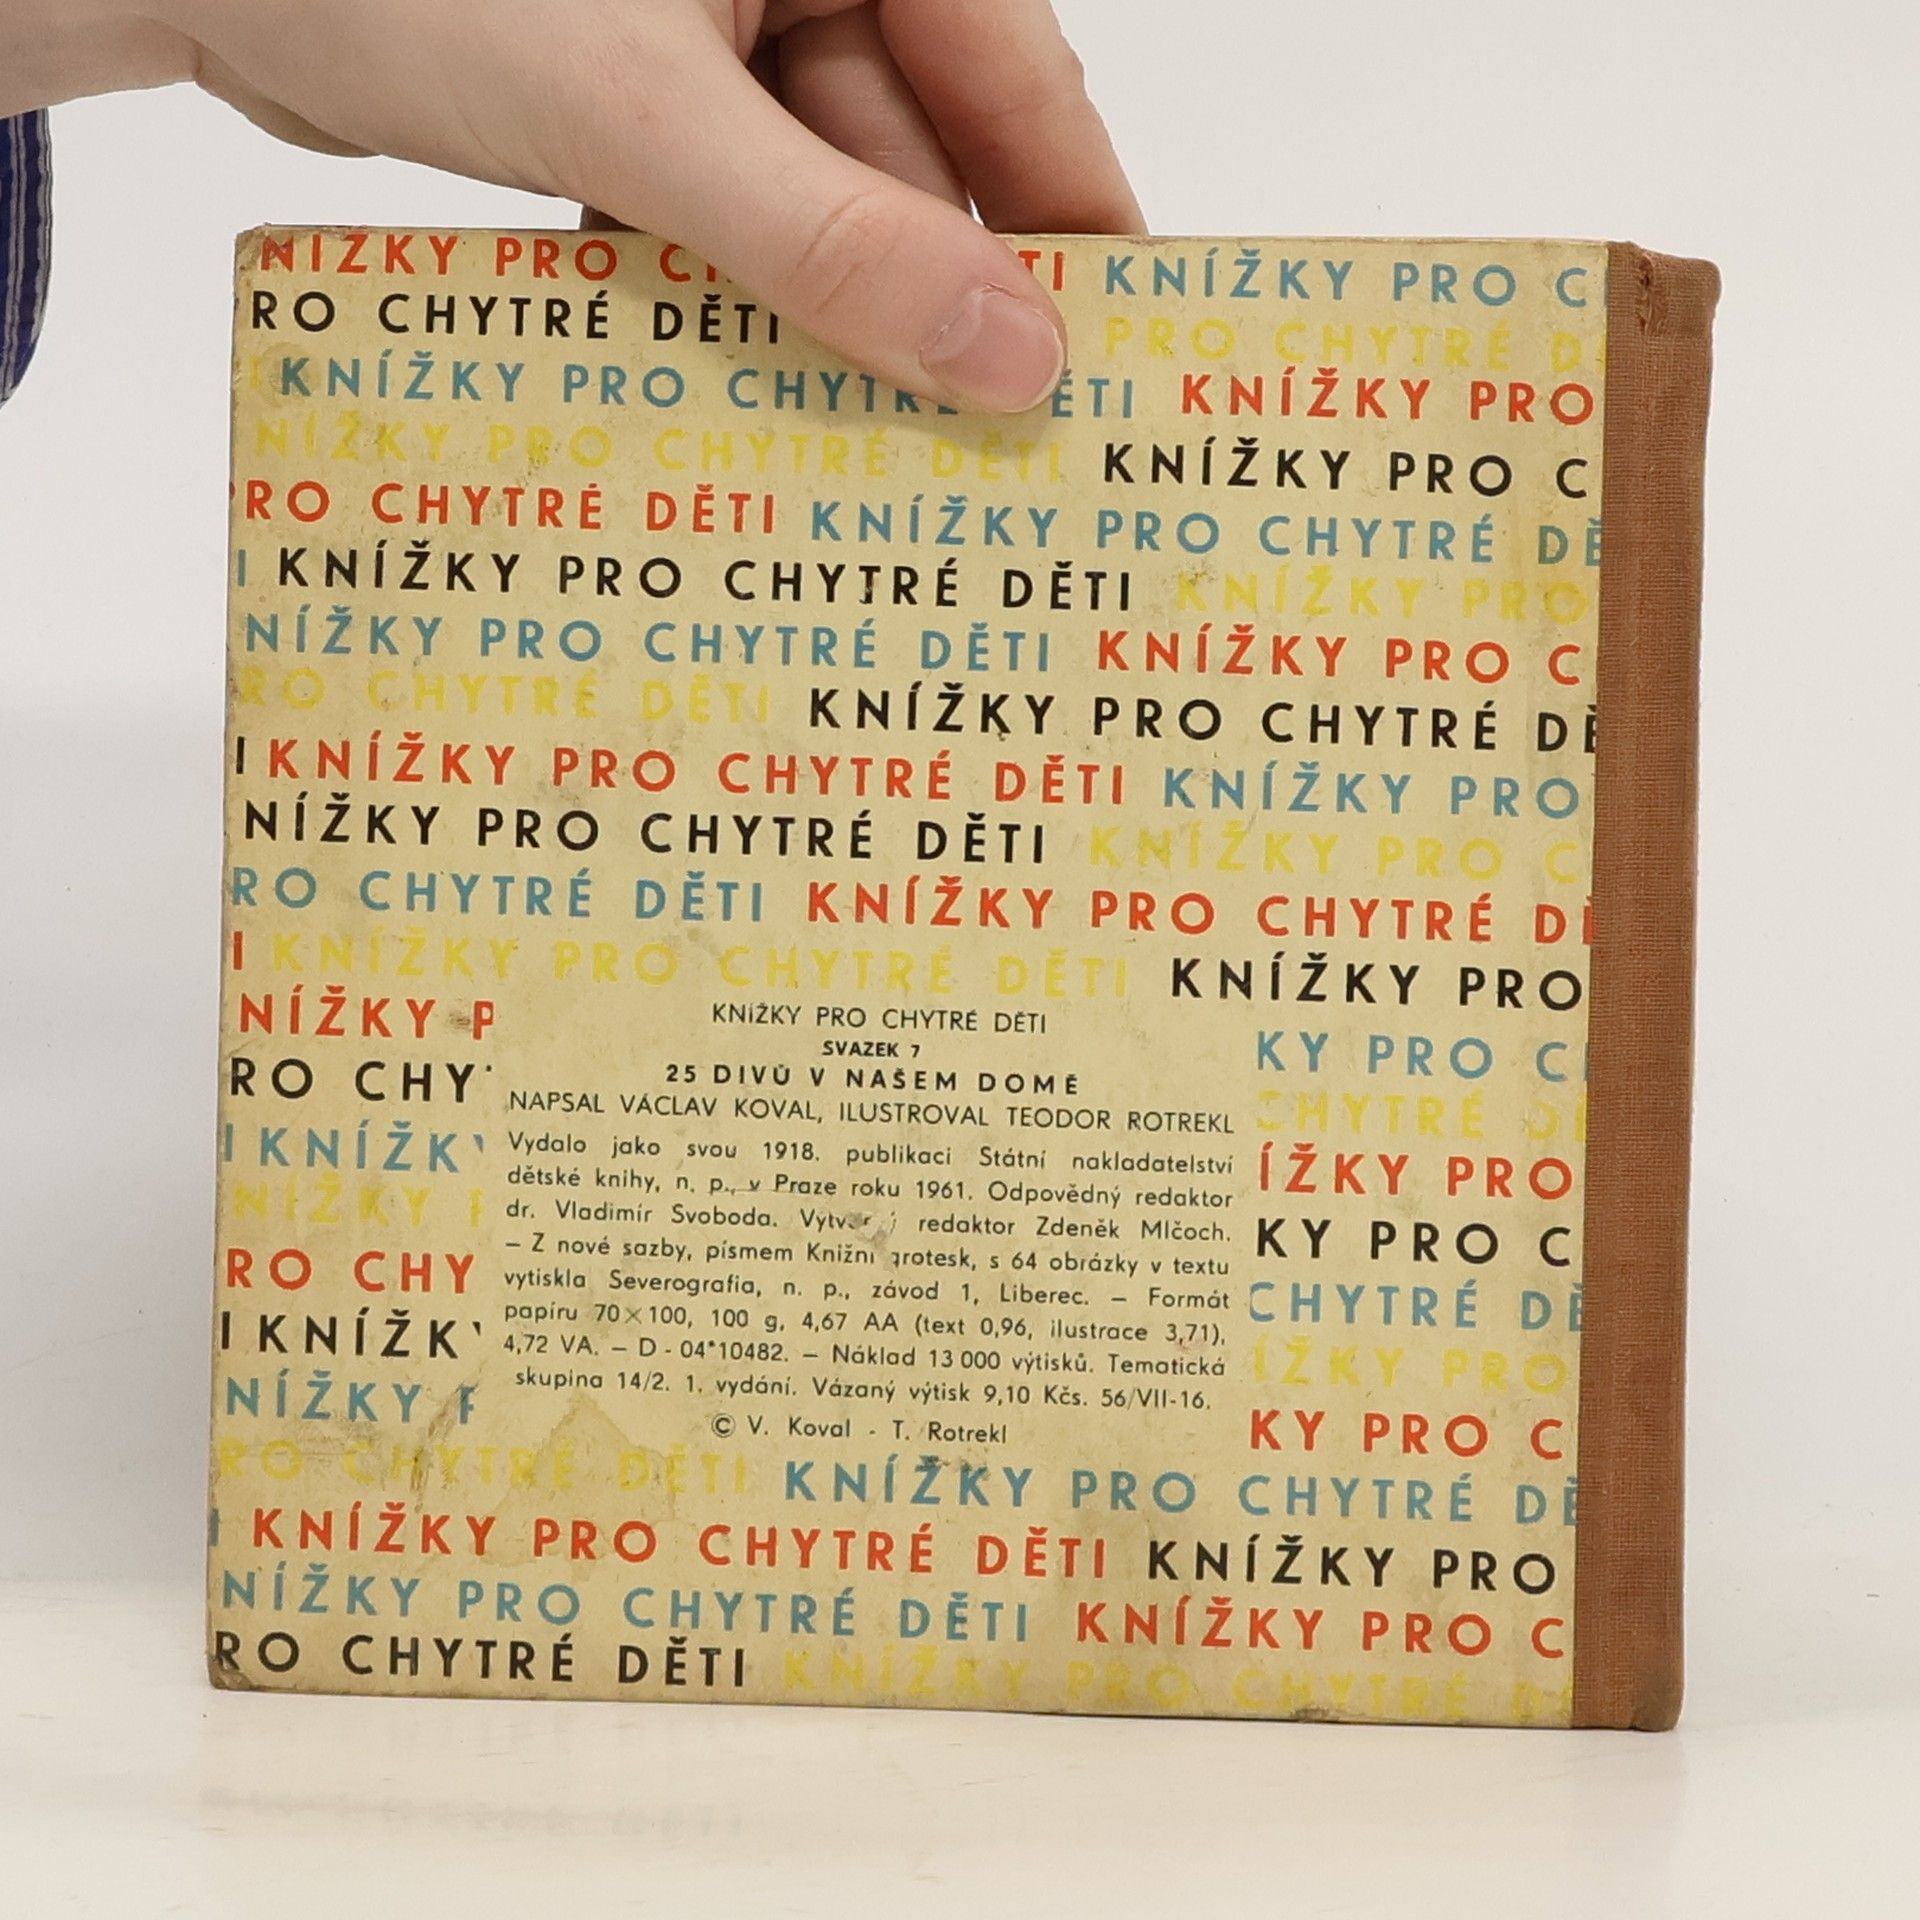 NÍŽKY PRO TI KNÍŽKY PRO C
RO CHYTRÉ DĚTI PRO CHYTRÉ D
KNÍŽKY PRO ĚTI KNÍŽKY PRO
NÍŽKY PRO CHYTRÉ DĚTI KNÍŽKY PRO C
RO CHYTRÉ DĚTI KNÍŽKY PRO CHYTRÉ DĚ
I KNÍŽKY PRO CHYTRÉ DĚTI KNÍŽKY PRO
NÍŽKY PRO CHYTRÉ DĚTI KNÍŽKY PRO C
RO CHYTRÉ DĚTI KNÍŽKY PRO CHYTRÉ DĚ
I KNÍŽKY PRO CHYTRÉ DĚTI KNÍŽKY PRO
NÍŽKY PRO CHYTRÉ DĚTI KNÍŽKY PRO C
RO CHYTRÉ DĚTI KNÍŽKY PRO CHYTRÉ DĚ
I KNÍŽKY PRO CHYTRÉ DĚTI KNÍŽKY PRO
NÍŽKY P
RO CHY
I KNÍŽK
NÍŽKY P
RO CHY
I KNÍŽK
NÍŽKY P
KNÍŽKY PRO CHYTRÉ DĚTI
SVAZEK 7
25 DIVŮ V NAŠEM DOMĚ
NAPSAL VÁCLAV KOVAL, ILUSTROVAL TEODOR ROTREKL
Vydalo jako svou 1918. publikaci Státní nakladatelství
dětské knihy, n. p., v Praze roku 1961. Odpovědný redaktor
dr. Vladimír Svoboda. redaktor Zdeněk Mlčoch.
– Z nové sazby, písmem Knižní grotesk, s 64 obrázky v textu
vytiskla Severografia, n. p., závod 1, Liberec. – Formát
papíru 70×100, 100 g, 4,67 AA (text 0,96, ilustrace 3,71),
4,72 VA. – D - 04*10482. – Náklad 13 000 výtisků. Tematická
skupina 14/2. 1. vydání. Vázaný výtisk 9,10 Kčs. 56/VII-16.
© V. Koval - T. Rotrekl
KY PRO C
CHYTRÉ DĚ
ÍŽKY PRO
KY PRO C
CHYTRÉ DĚ
ÍŽKY PRO
KY PRO C
RO CHYTRÉ DĚTI KNÍŽKY PRO CHYTRÉ DĚ
I KNÍŽKY PRO CHYTRÉ DĚTI KNÍŽKY PRO
NÍŽKY PRO CHYTRÉ DĚTI KNÍŽKY PRO C
RO CHYTRÉ DĚTI KNÍŽKY PRO CHYTRÉ D